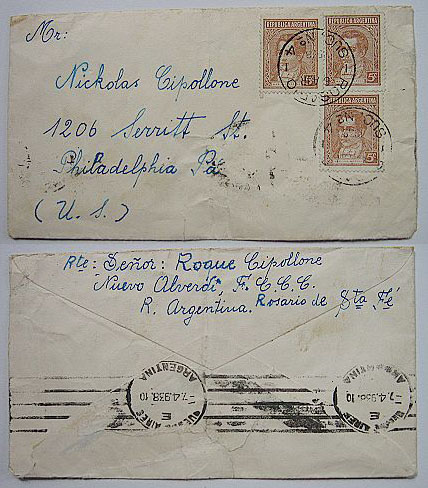 Mr:
REPUBLICA ARGENTINA
REPUBLICA ARGENTINA
5c
REPUBLICA ARGENTINA
5c
SUC. Nº 4
ROSARIO
SUC. Nº 4
Nickolas Cipollone
1206 Serritt St.
Philadelphia Pa
(U. S.)
Rte: Señor: Roque Cipollone
Nuevo Alverdi, F. C. C. C.
R. Argentina. Rosario de Sta Fé
BUENOS AIRES
E
-7.4.938.10
ARGENTINA
AIRES
E
-7.4.938.10
ARGENTINA